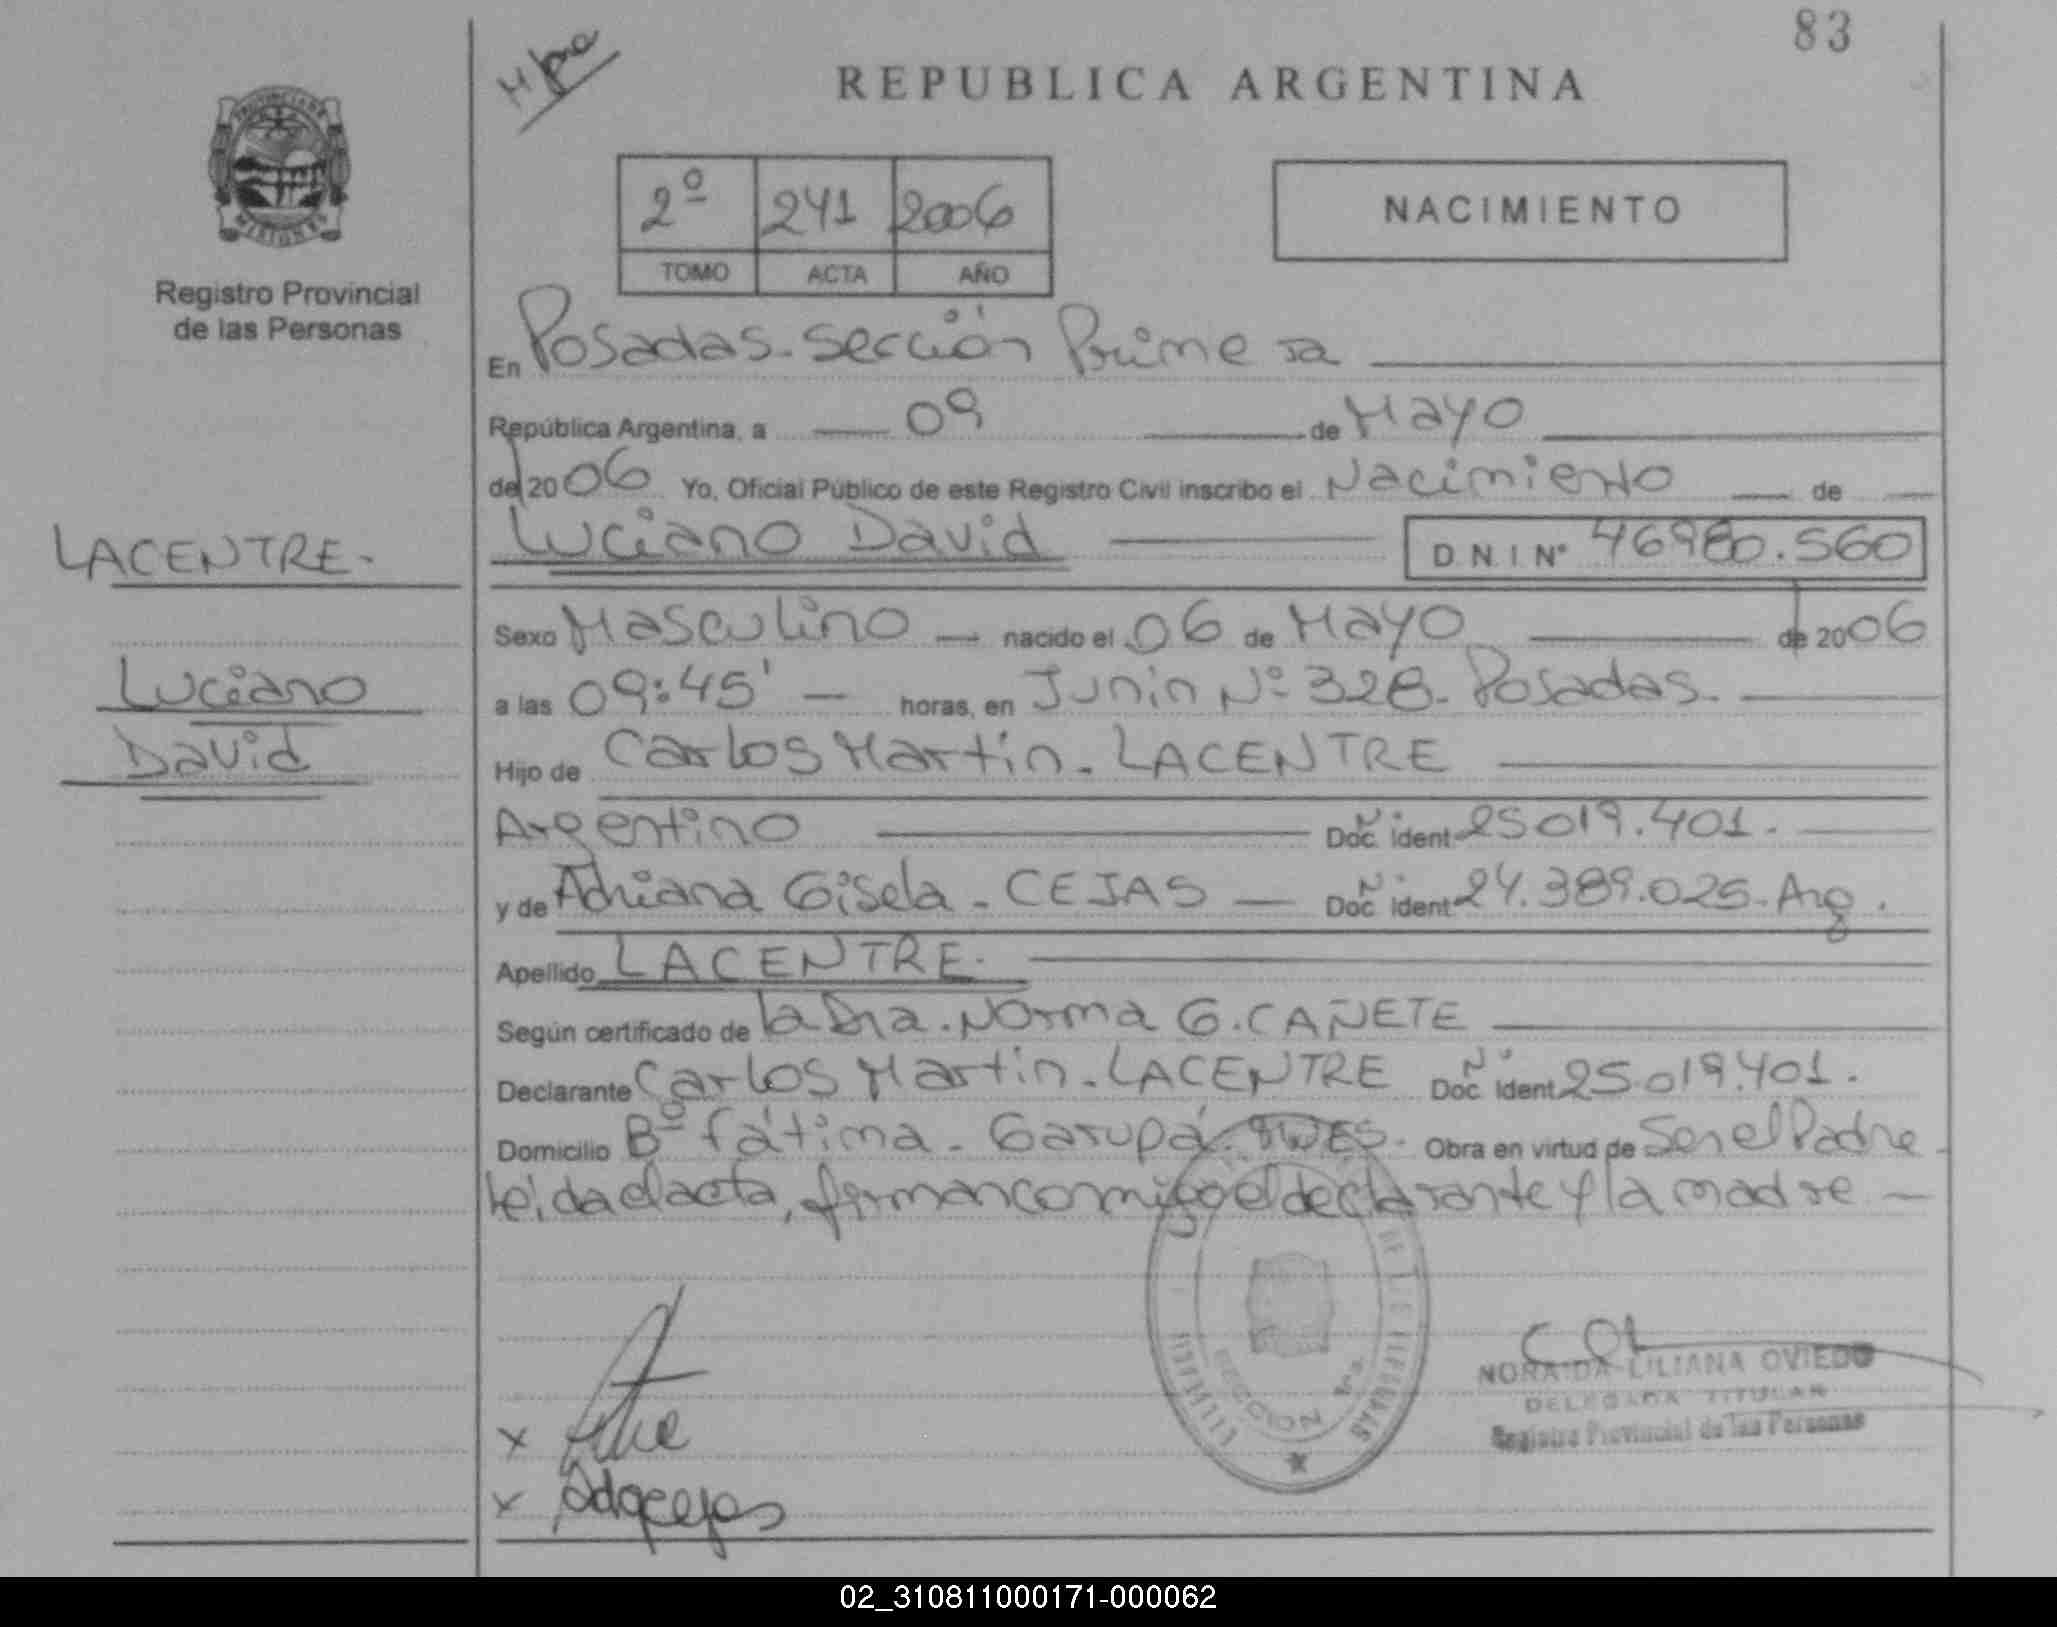 83
REPUBLICA ARGENTINA
PROVINCIA DE
MISIONES
Registro Provincial
de las Personas
2º 241 2006
TOMO ACTA AÑO
NACIMIENTO
En Posadas-Sección Primera
República Argentina, a 09 de Mayo
de 2006 Yo, Oficial Público de este Registro Civil inscribo el Nacimiento de
LACENTRE-
Luciano
David
Luciano David D.N.I. Nº 46980.560
Sexo Masculino nacido el 06 de Mayo de 2006
a las 09:45' horas, en Junin Nº 328- Posadas.
Hijo de Carlos Martin- LACENTRE
Argentino Doc. ident Nº 25019.401.
y de Adriana Gisela - CEJAS Doc. ident Nº 24.389.025- Arg.
Apellido LACENTRE.
Según certificado de la Dra. Norma G. CAÑETE
Declarante Carlos Martin- LACENTRE Doc. Ident Nº 25.019.401.
Domicilio Bº fátima - Garupá- Obra en virtud de Ser el Padre
leída el acta, firman conmigo el declarante y la madre
SECCION 1ra.
NORAIDA LILIANA OVIEDO
DELEGADA TITULAR
Registro Provincial de las Personas
x
x Adgcejas
02_310811000171-000062